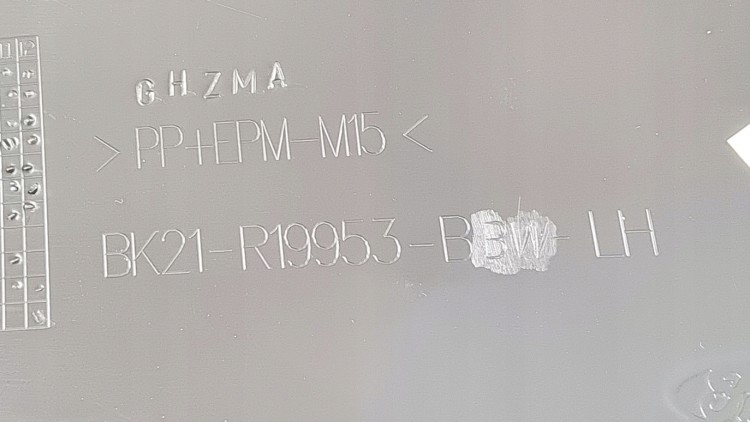 GHZMA
>PP+EPM-M15<
BK21-R19953-BBW-LH